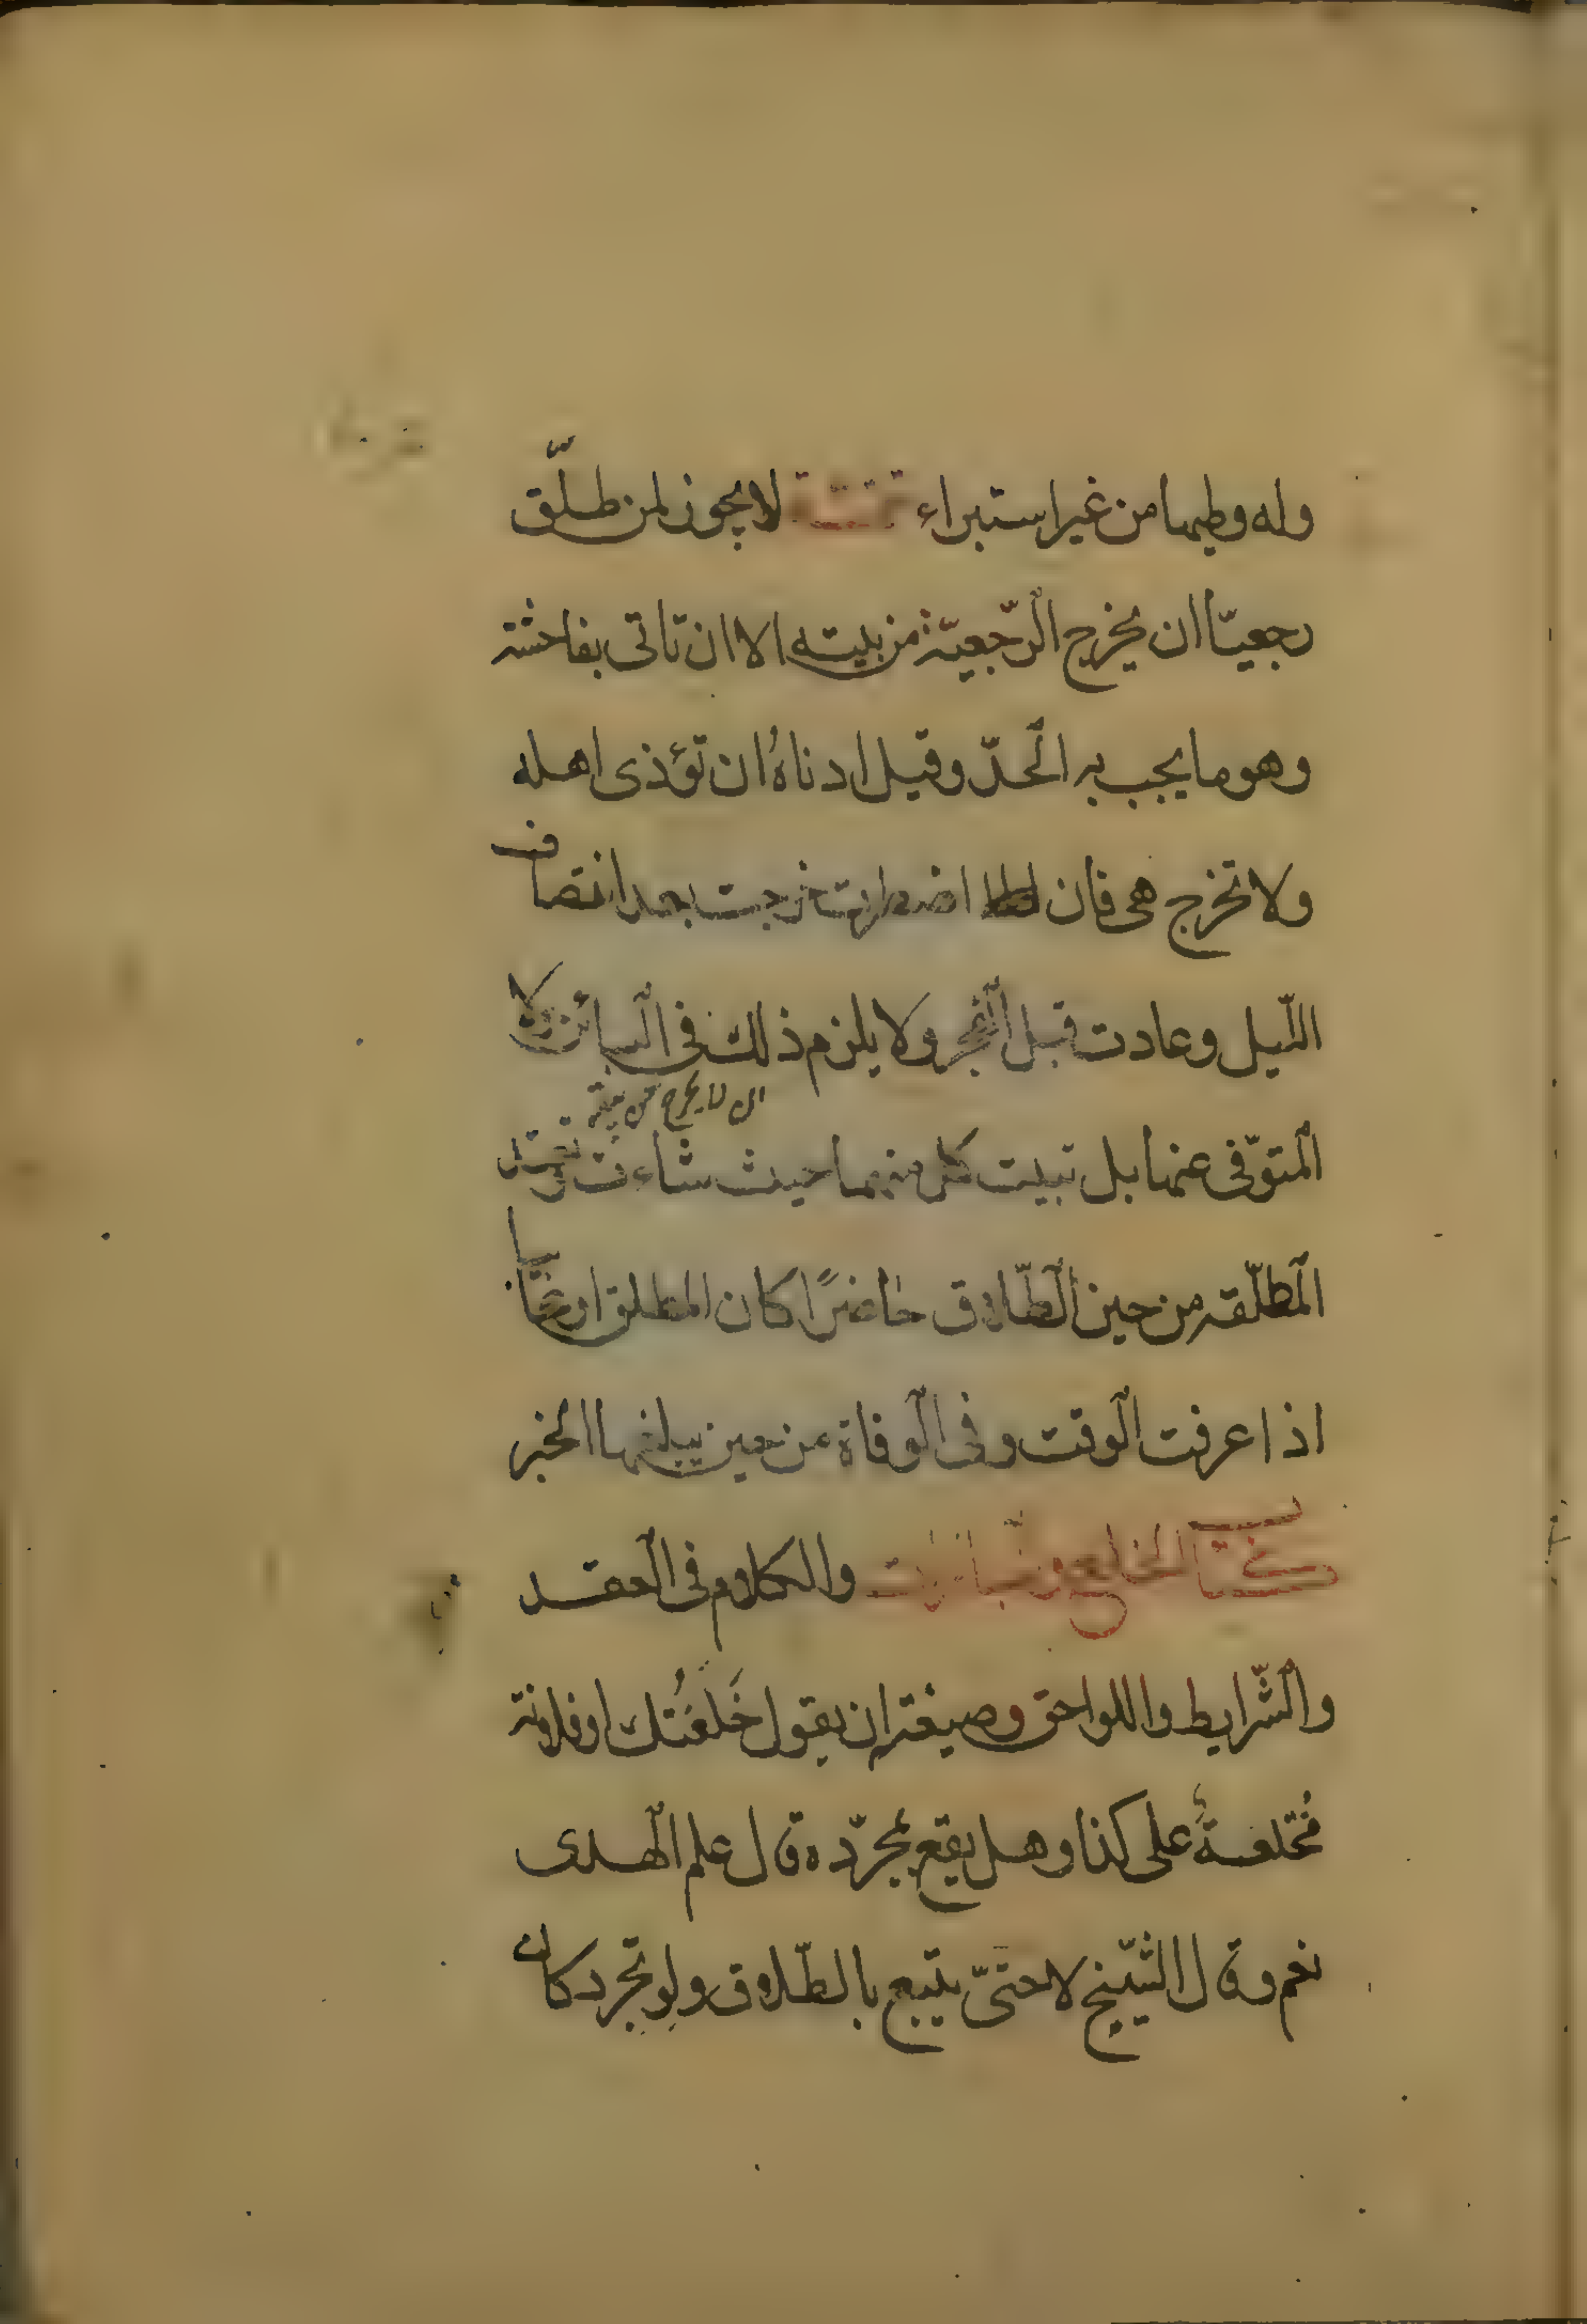 وله وطيها من غير استبراء تتمّة لا يجوز لمن طلّق
رجعيّا ان يخرج الرّجعيّة من بيته الا ان تاتى بفاحشة
وهو ما يجب به الحدّ وقيل ادناهُ ان تؤذى اهله
ولا تخرج هى فان اضطرت خرجت بعد انتصاف
اللّيل وعادت قبل الفجر ولا يلزم ذلك فى البائن ولا
اى لا يخرج من بيته
المتوّفى عنها بل تبيت كل منهما حيث شاءت وتعتد
المطلّقه من حين الطّلاق حاضرًا كان المطلق او غايبا
اذا عرفت الوقت وفى الوفاة من حين يبلغها الخبر
كتاب الخلع والمباراة والكلام فى العقد
والشّرايط واللواحق وصيغته ان يقول خَلَعتُك او فلانة
مُختلعةٌ على كذا وهل يقع بمجرّده قال علم الهدى
نعم وقال الشّيخ لا حتىّ يتبع بالطّلاق ولو تجرد كان